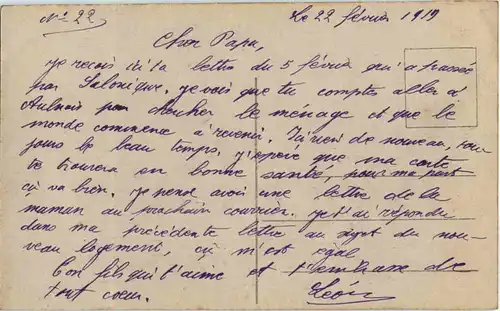 N° 22 Le 22 février 1919
Cher Papa,
je reçois ici ta lettre du 5 février qui a passée
par Salonique, je vois que tu comptes aller à
Aulnois pour chercher le ménage et que le
monde commence à revenir. Ici rien de nouveau, tou-
jours le beau temps. j'espère que ma carte
te trouvera en bonne santé, pour ma part
ça va bien. je pense avoir une lettre de la
maman au prochain courrier. je t'ai répondu
dans ma précédente lettre au sujet du nou-
veau logement, ça m'est égal
Ton fils qui t'aime et t'embrasse de
tout coeur. Léon